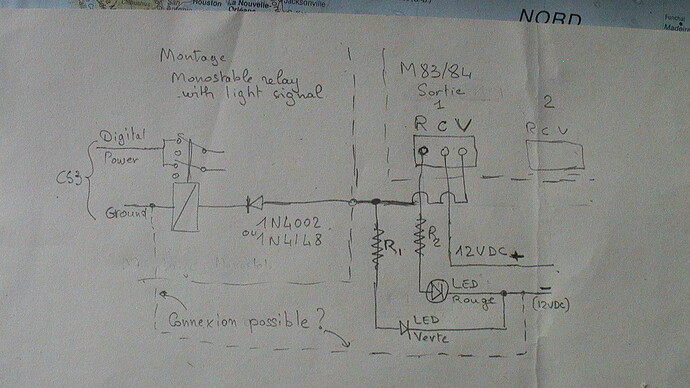 Houston
La Nouvelle-
Orléans
Jacksonville
NORD
Funchal
Madeire
Montage
Monostable relay
with light signal
M83/84
Sortie
1
2
R C V
R C V
Digital
Power
CS3
Ground
1N4002
ou
1N4148
R1
R2
12VDC +
LED
Rouge
-
(12VDC)
LED
Verte
Connexion possible ?